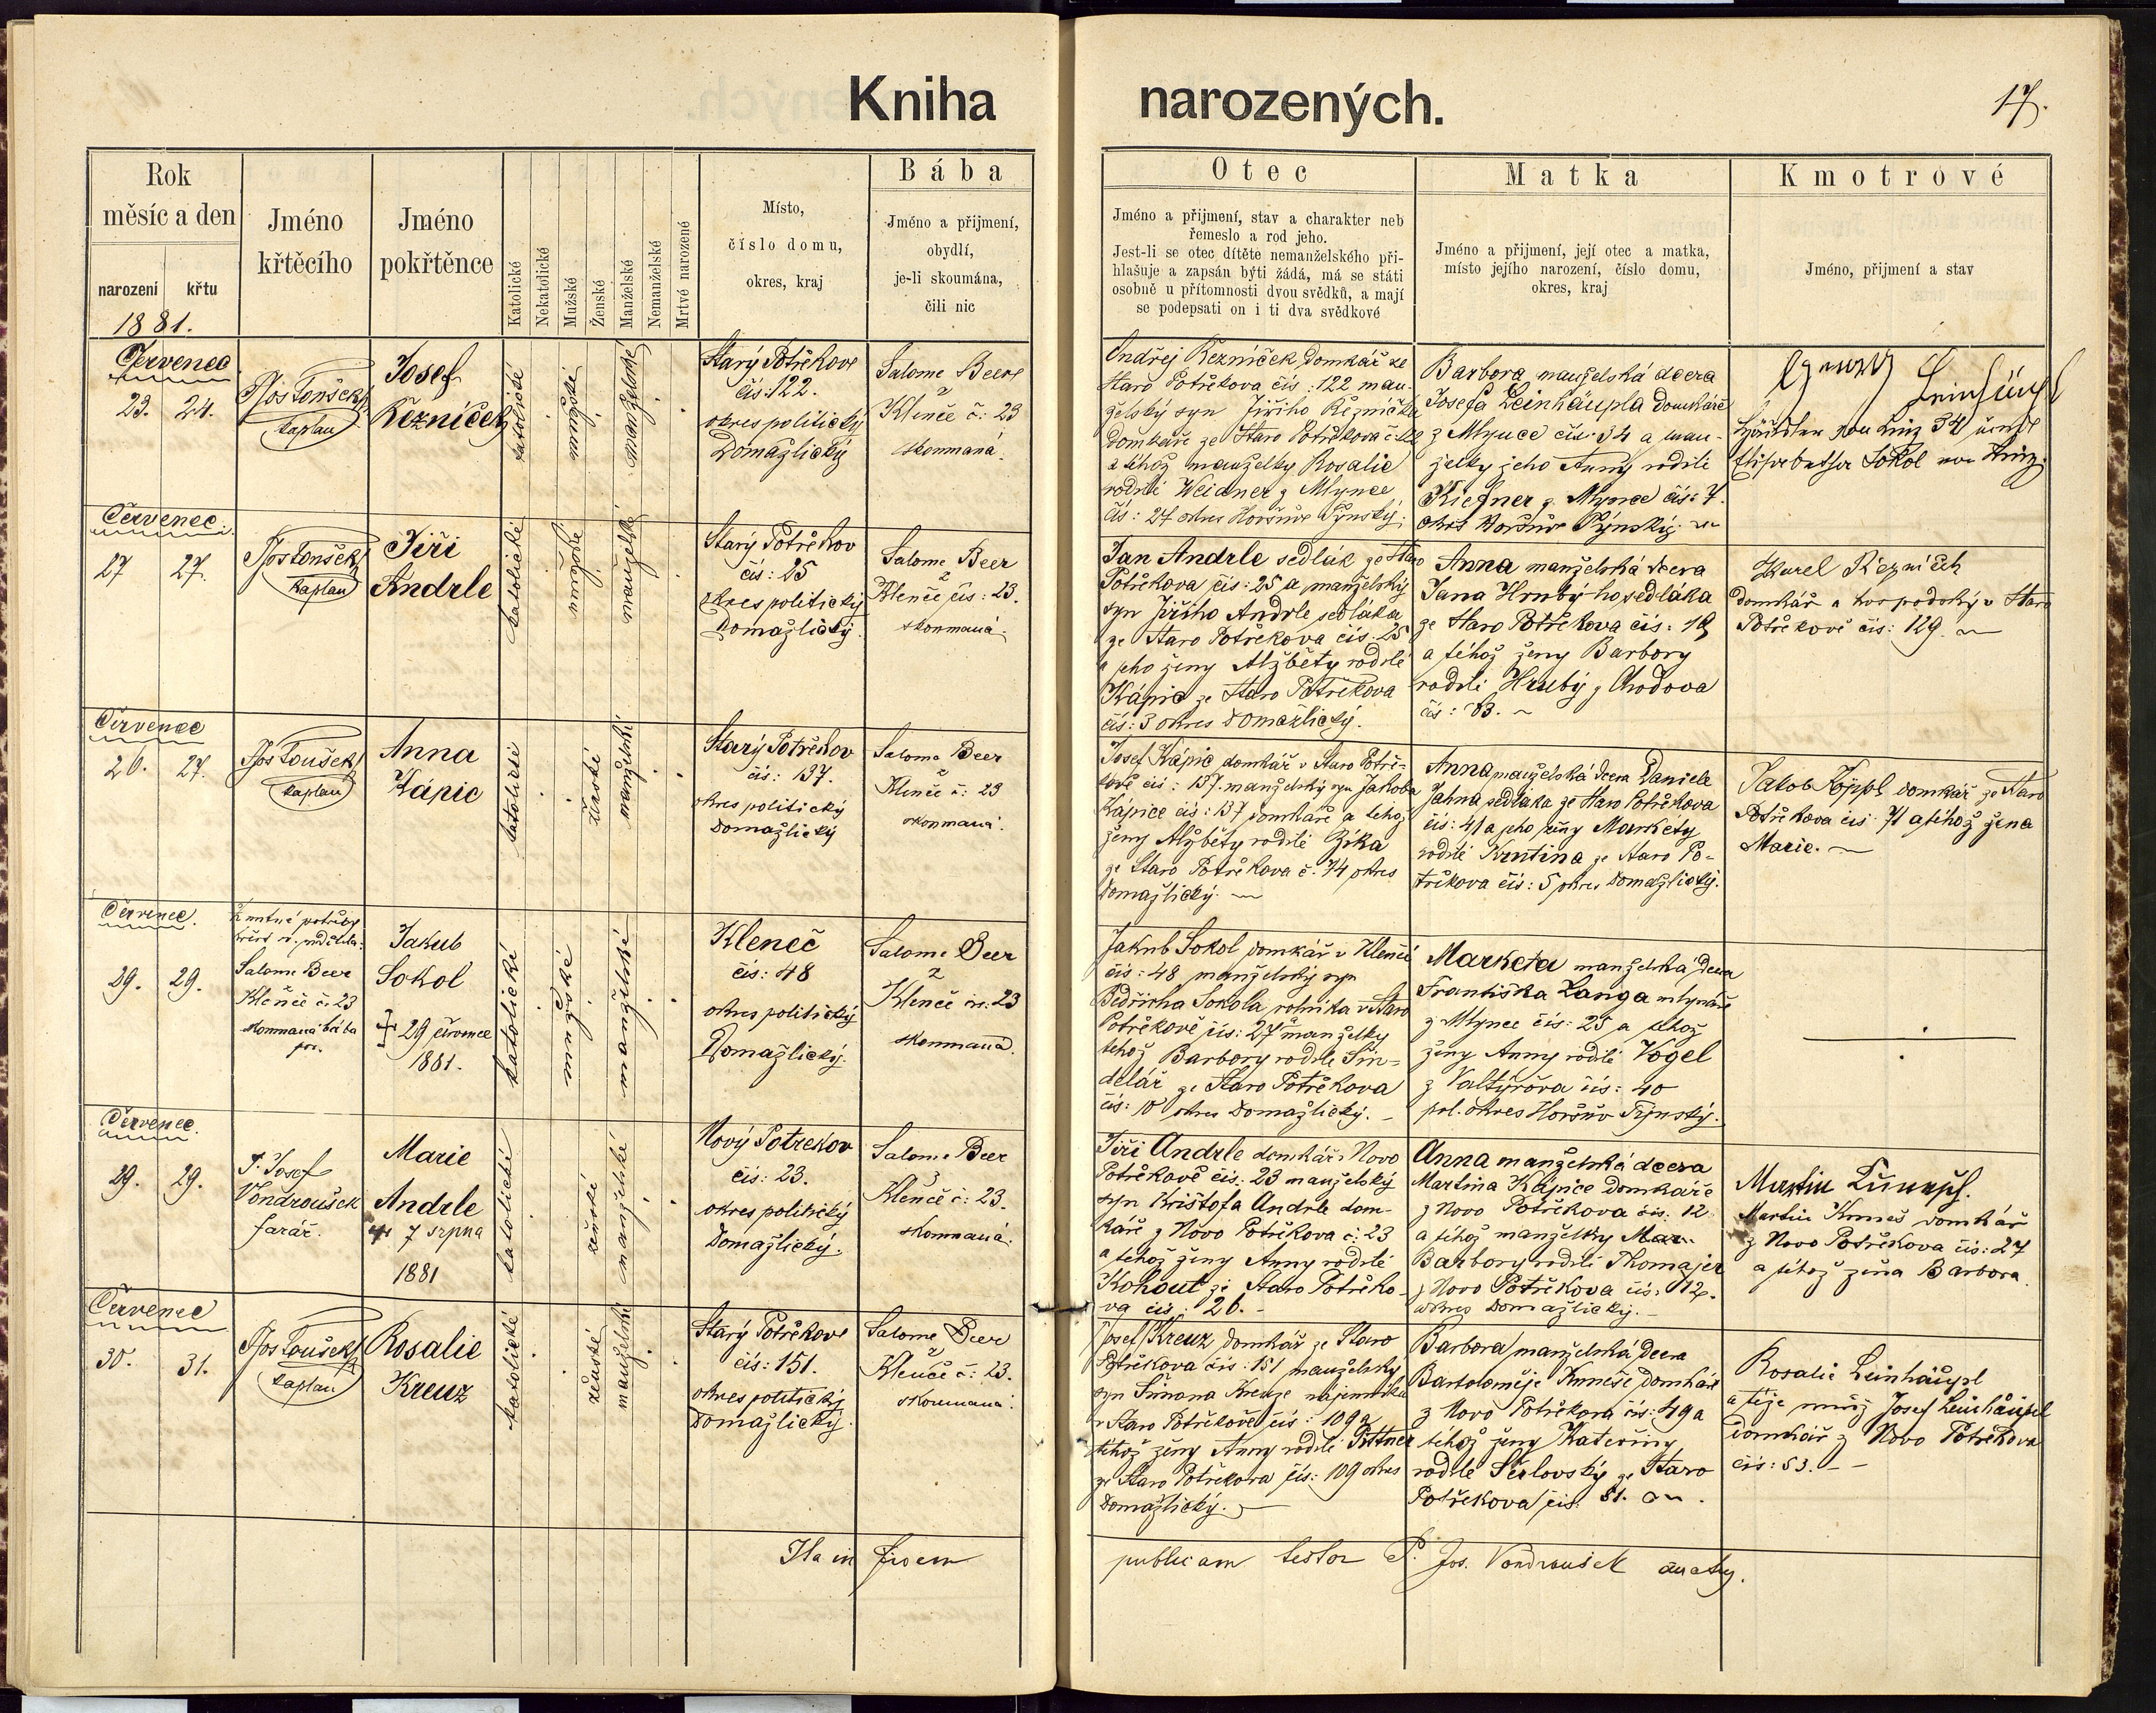 Kniha narozených.
17.
Rok
měsíc a den
narození křtu
1881.
Jméno
křtěcího
Jméno
pokřtěnce
Katolické
Nekatolické
Mužské
Ženské
Manželské
Nemanželské
Mrtvé narozené
Místo,
číslo domu,
okres, kraj
Bába
Jméno a přijmení,
obydlí,
je-li skoumána,
čili nic
Otec
Jméno a přijmení, stav a charakter neb
řemeslo a rod jeho.
Jest-li se otec dítěte nemanželského při-
hlašuje a zapsán býti žádá, má se státi
osobně u přítomnosti dvou svědků, a mají
se podepsati on i ti dva svědkové
Matka
Jméno a přijmení, její otec a matka,
místo jejího narození, číslo domu,
okres, kraj
Kmotrové
Jméno, přijmení a stav
Červenec
23. 24.
Jos Toušek
kaplan
Josef
Řezníček
katolické
mužské
manželské
Starý Potřekov
čís: 122.
okres politický
Domažlický
Salome Beer
z
Klenče č: 23
skoumaná.
Ondřej Řezníček, domkář ze
Staro Potřekova čís: 122 man-
želský syn Jiřího Řezníčka
domkáře ze Staro Potřekova
a téhož manželky Rosalie
rodilé Weidner z Mlynce
čís: 27 okres Horšův Týnský.
Barbora manželská dcera
Josefa Leinhäupla domkáře
z Mlynce čís: 34 a man-
želky jeho Anny rodilé
Kiefner z Mlynce čís: 7.
okres Horšův Týnský.
Leinhäupl
Sokol
Červenec
27 27.
Jos Toušek
kaplan
Jiří
Andrle
katolické
mužské
manželské
Starý Potřekov
čís: 25
okres politický
Domažlický.
Salome Beer
z
Klenče čís: 23.
skoumaná.
Jan Andrle sedlák ze Staro
Potřekova čís: 25 a manželský
syn Jiřího Andrle sedláka
ze Staro Potřekova čís. 25
a jeho ženy Alžběty rodilé
Kápic ze Staro Potřekova
čís: 3 okres Domažlický.
Anna manželská dcera
Jana Hrubýho sedláka
ze Staro Potřekova čís: 19
a téhož ženy Barbory
rodilé Hrubý z Chodova
čís: 83.
Karel Řezníček
domkář a hospodský v Staro
Potřekově čís: 129.
Červenec
26. 27.
Jos Toušek
kaplan
Anna
Kápic
katolické
ženské
manželské
Starý Potřekov
čís: 137.
okres politický
Domažlický
Salome Beer
z
Klenče č: 23
skoumaná.
Josef Kápic domkář v Staro Potře-
kově čís: 137. manželský syn Jakoba
Kápice čís: 137 domkáře a téhož
ženy Alžběty rodilé Zíka
ze Staro Potřekova č. 74 okres
Domažlický.
Anna manželská dcera Daniele
Jahna sedláka ze Staro Potřekova
čís: 41 a jeho ženy Markéty
rodilé Krutina ze Staro Po-
třekova čís: 5 okres Domažlický.
Jakob Köppl domkář ze Staro
Potřekova čís 71 a téhož žena
Marie.
Červenec.
29. 29.
Salome Beer
Klenče č. 23
skoumaná bába
Jakub
Sokol
† 29 července
1881.
katolické
mužské
manželské
Kleneč
čís: 48
okres politický
Domažlický.
Salome Beer
z
Klenče čís: 23
skoumaná.
Jakub Sokol domkář v Klenči
čís: 48 manželský syn
Bedřicha Sokola rolníka v Staro
Potřekově čís: 27 a manželky
téhož Barbory rodilé Šin-
delář ze Staro Potřekova
čís: 10 okres Domažlický.
Marketa manželská dcera
Františka Langa mlynáře
z Mlynce čís: 25 a téhož
ženy Anny rodilé Vogel
z Valtýrova čís: 40
pol. okres Horšův Týnský.
Červenec.
29. 29.
P. Josef
Vondroušek
farář.
Marie
Andrle
† 7 srpna
1881
katolické
ženské
manželské
Nový Potřekov
čís: 23.
okres politický
Domažlický.
Salome Beer
z
Klenče č: 23.
skoumaná.
Jiří Andrle domkář v Novo
Potřekově čís.: 23 manželský
syn Krištofa Andrle dom-
káře z Novo Potřekova č: 23
a téhož ženy Anny rodilé
Kohout ze Staro Potřeko-
va čís: 20.
Anna manželská dcera
Martina Kápice domkáře
z Novo Potřekova čís. 12
a téhož manželky Mar
Barbory rodilé Thomajer
z Novo Potřekova čís: 12.
okres Domažlický.
Martin
Martin Kuneš domkář
z Novo Potřekova čís: 27
a téhož žena Barbora.
Červenec
30. 31.
Jos Toušek
kaplan
Rosalie
Kreuz
katolické
ženské
manželské
Starý Potřekov
čís: 151.
okres politický
Domažlický.
Salome Beer
z
Klenče č: 23.
skoumaná.
Josef Kreuz, domkář ze Staro
Potřekova čís: 151 manželský
syn Šimona Kreuze nájemníka
v Staro Potřekově čís: 109 a
téhož ženy Anny rodilé Pittner
ze Staro Potřekova čís: 109 okres
Domažlický.
Barbora manželská dcera
Bartoloměje Kuneše domkáře
z Novo Potřekova čís: 49 a
téhož ženy Kateřiny
rodilé Šerlovský ze Staro
Potřekova čís. 81.
Rosalie Leinhäupl
a téže muž Josef Leinhäupl
domkář z Novo Potřekova
čís: 53.
Ita in fidem publicam testor P. Jos. Vondroušek